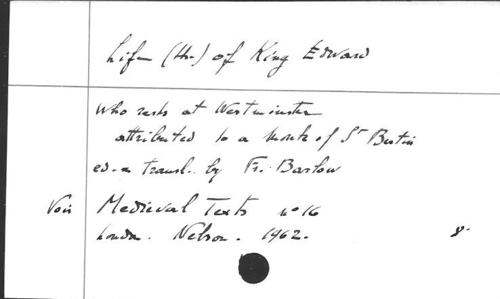 Life (the) of King Edward
who rests at Westminster
attributed to a Monk of St Bertin
ed. & transl. by Fr. Barlow
Voir Medieval Texts no 16
London. Nelson. 1962. 8°